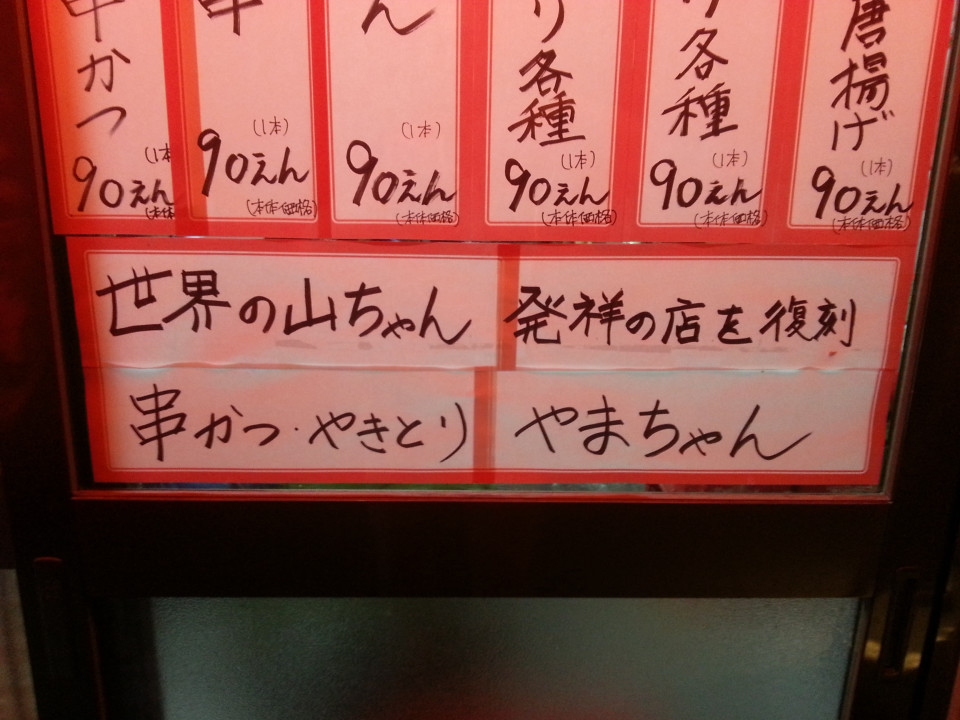 串かつ
(1本
90えん
(本体
串
(1本)
90えん
(本体価格)
ん
(1本)
90えん
(本体価格)
り各種
(1本)
90えん
(本体価格)
り各種
(1本)
90えん
(本体価格)
唐揚げ
(1本)
90えん
(本体価格)
世界の山ちゃん 発祥の店を復刻
串かつ・やきとり やまちゃん